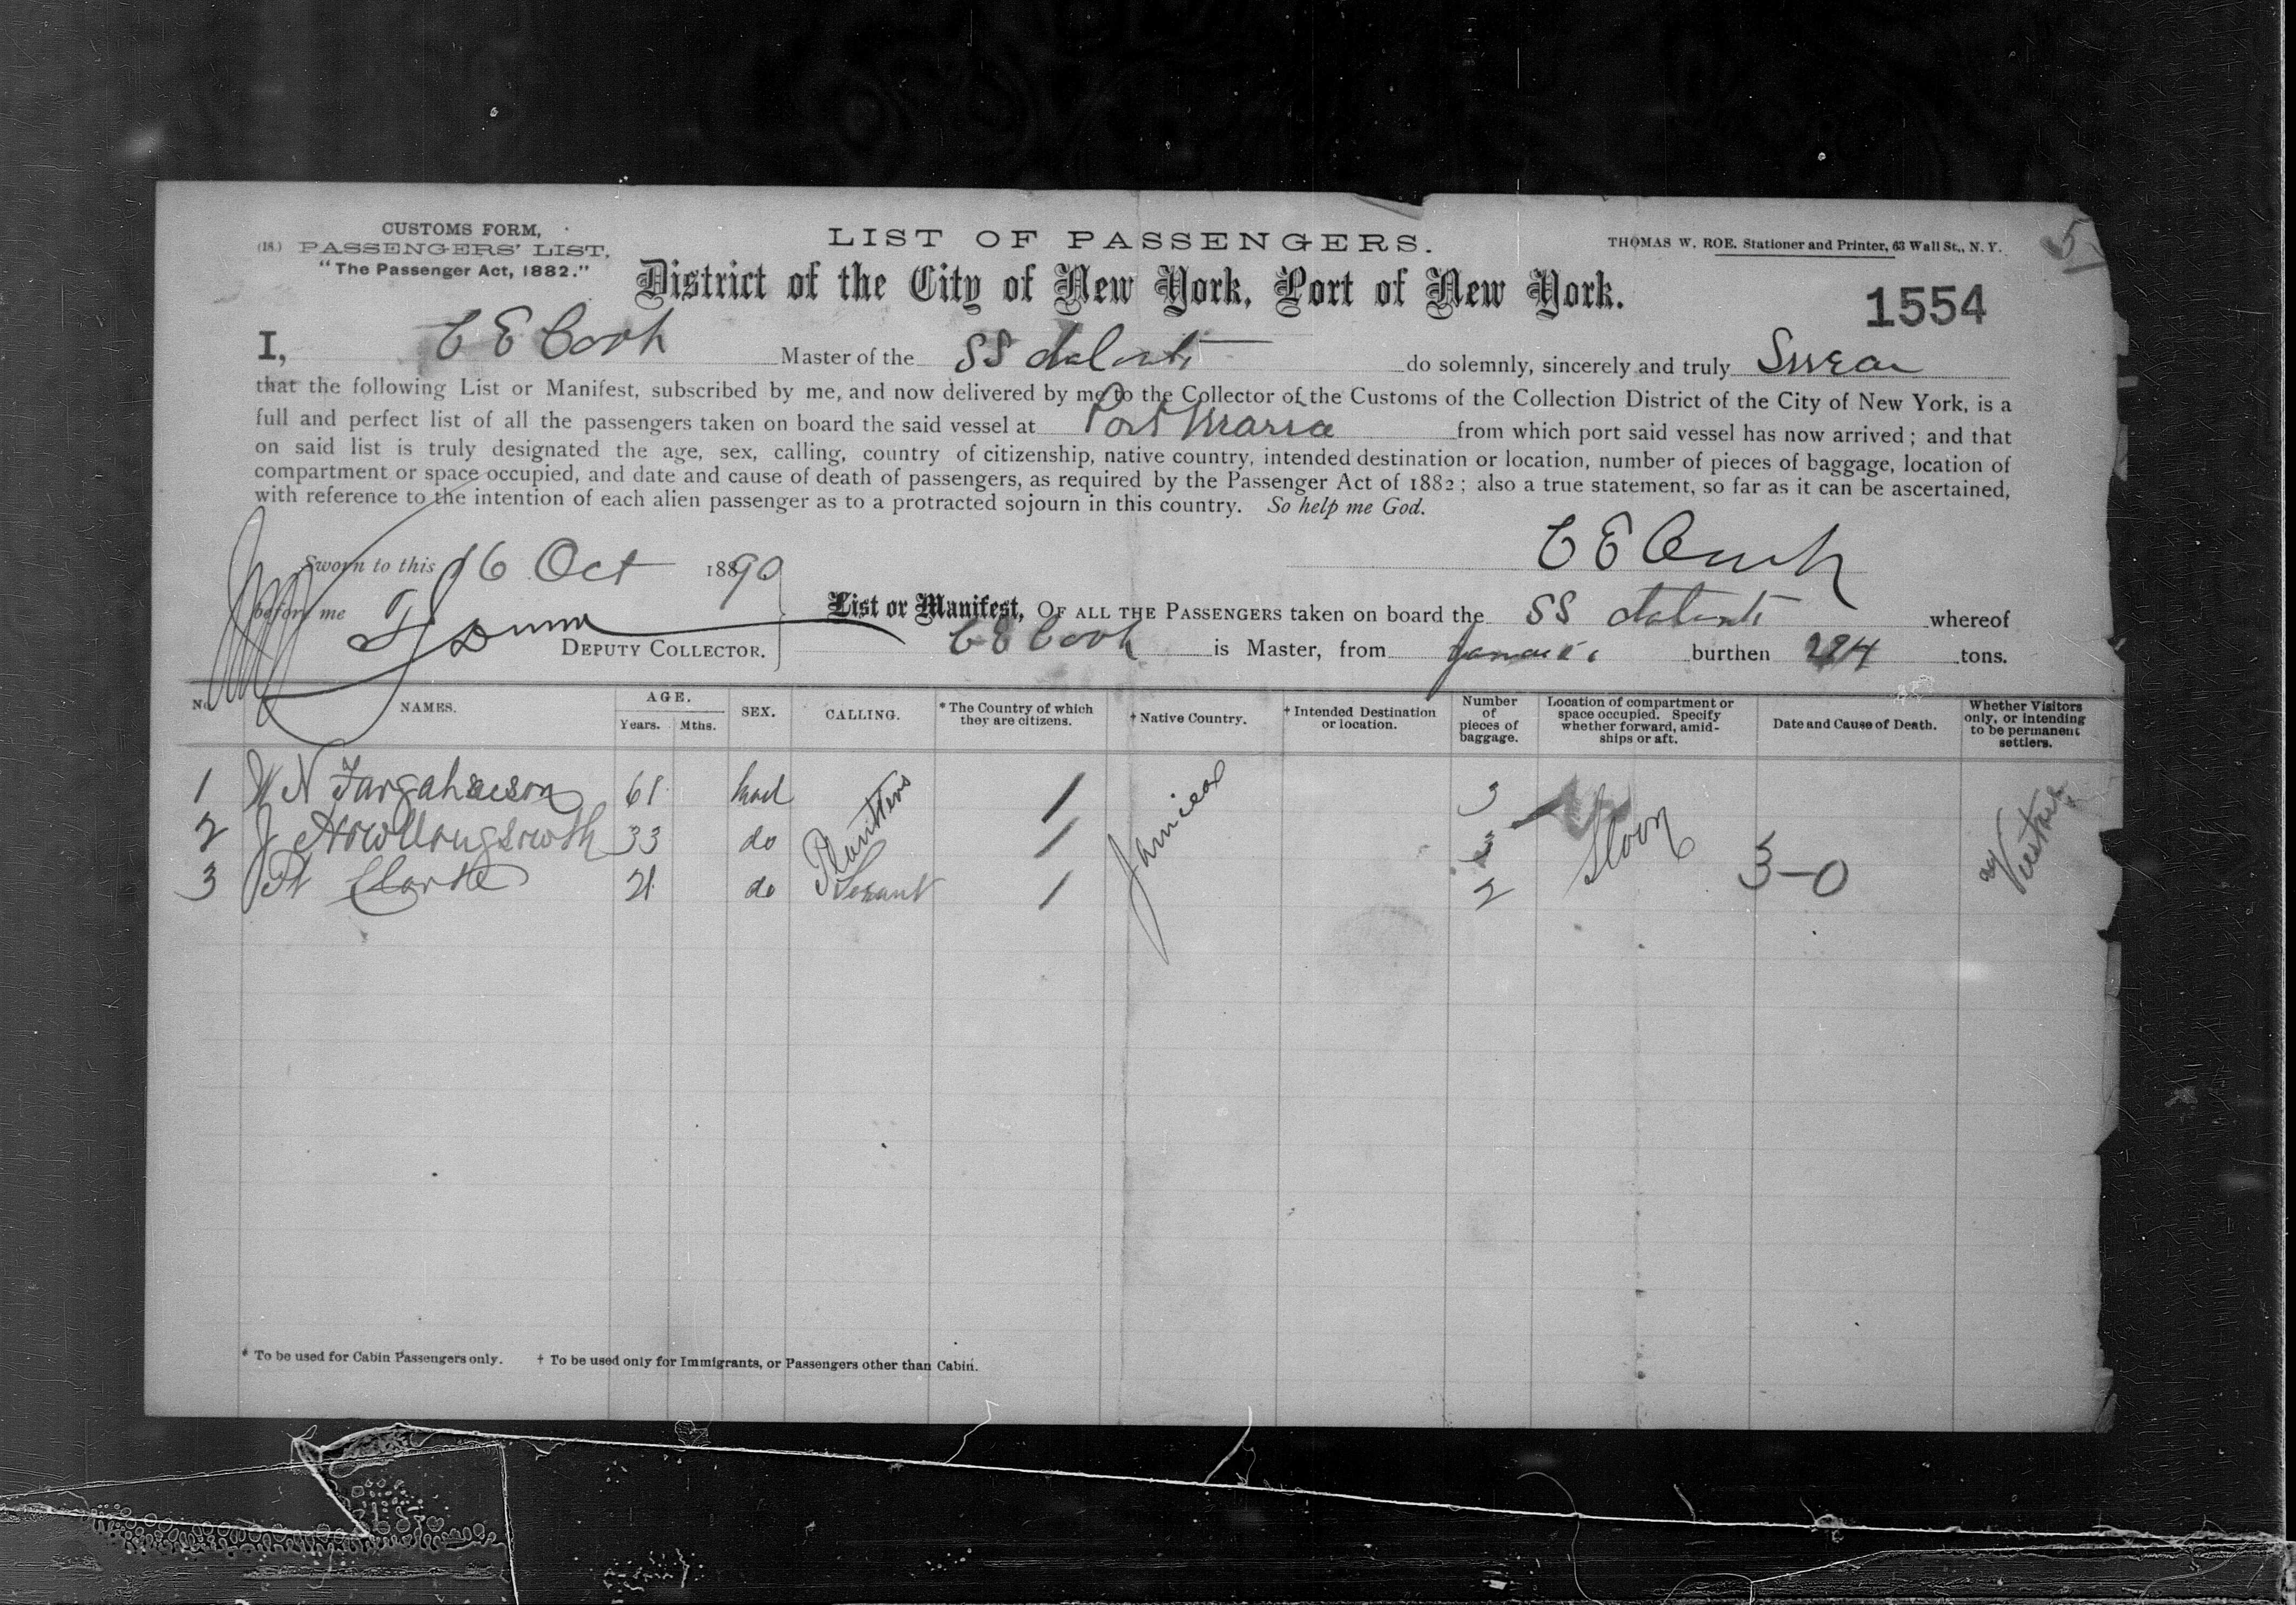 CUSTOMS FORM,
(18.) PASSENGERS' LIST.
"The Passenger Act, 1882."
LIST OF PASSENGERS.
THOMAS W. ROE. Stationer and Printer, 63 Wall St., N. Y.
5
District of the City of New York, Port of New York.
1554
I, C E Cook Master of the SS do solemnly, sincerely and truly Swear
that the following List or Manifest, subscribed by me, and now delivered by me to the Collector of the Customs of the Collection District of the City of New York, is a
full and perfect list of all the passengers taken on board the said vessel at Port Maria from which port said vessel has now arrived; and that
on said list is truly designated the age, sex, calling, country of citizenship, native country, intended destination or location, number of pieces of baggage, location of
compartment or space occupied, and date and cause of death of passengers, as required by the Passenger Act of 1882; also a true statement, so far as it can be ascertained,
with reference to the intention of each alien passenger as to a protracted sojourn in this country. So help me God.
C E Cook
Sworn to this 16 Oct 1890
before me
DEPUTY COLLECTOR.
List or Manifest, OF ALL THE PASSENGERS taken on board the SS whereof
C E Cook is Master, from Jamaica burthen tons.
No. NAMES. AGE. Years. Mths. SEX. CALLING. * The Country of which they are citizens. † Native Country. † Intended Destination or location. Number of pieces of baggage. Location of compartment or space occupied. Specify whether forward, amidships or aft. Date and Cause of Death. Whether Visitors only, or intending to be permanent settlers.
1 W N 61 Planters / Jamica 3
2 J 33 do / 3 3-0
3 Clarke 21 do / 2
* To be used for Cabin Passengers only. † To be used only for Immigrants, or Passengers other than Cabin.